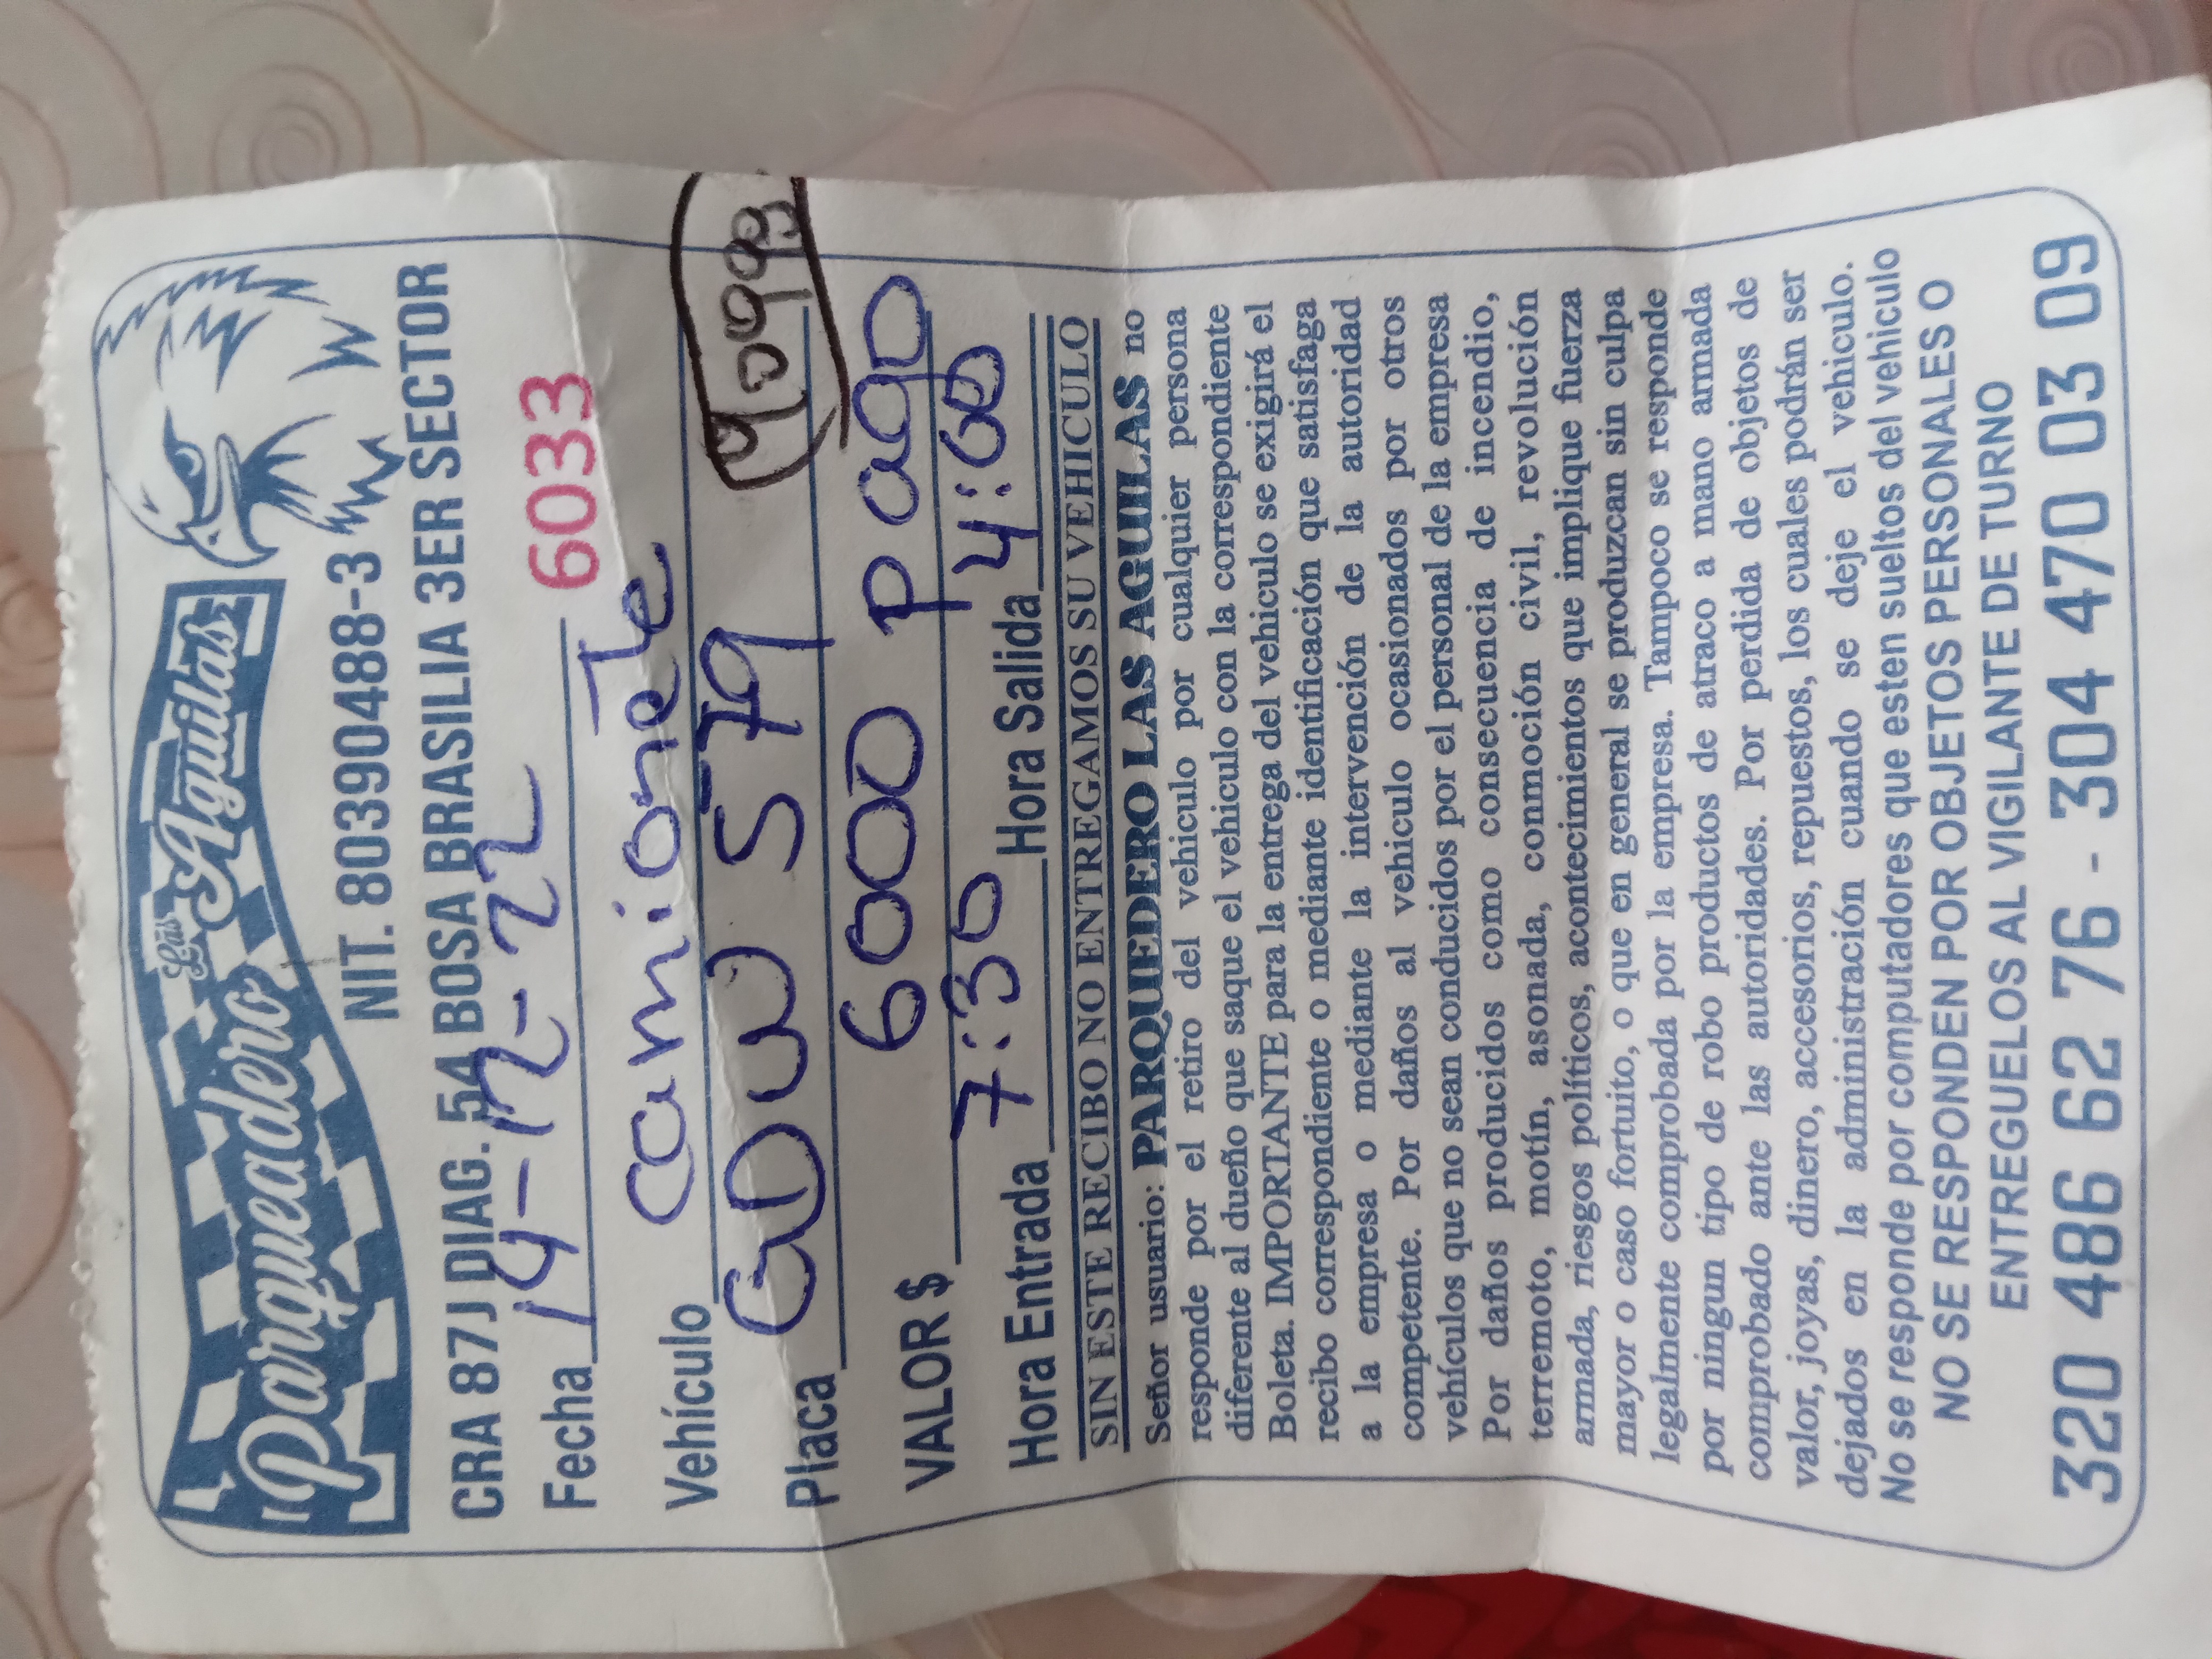 Parqueadero Las Aguilas
NIT. 80390488-3
CRA 87J DIAG. 54 BOSA BRASILIA 3ER SECTOR
Fecha 14-12-22 6033
Vehículo camioneTe
Placa 579
VALOR $ 6000 pago
Hora Entrada 7:30 Hora Salida 4:00
SIN ESTE RECIBO NO ENTREGAMOS SU VEHICULO
Señor usuario: PARQUEDERO LAS AGUILAS no
responde por el retiro del vehiculo por cualquier persona
diferente al dueño que saque el vehiculo con la correspondiente
Boleta. IMPORTANTE para la entrega del vehiculo se exigirá el
recibo correspondiente o mediante identificación que satisfaga
a la empresa o mediante la intervención de la autoridad
competente. Por daños al vehiculo ocasionados por otros
vehículos que no sean conducidos por el personal de la empresa
Por daños producidos como consecuencia de incendio,
terremoto, motín, asonada, conmoción civil, revolución
armada, riesgos políticos, acontecimientos que implique fuerza
mayor o caso fortuito, o que en general se produzcan sin culpa
legalmente comprobada por la empresa. Tampoco se responde
por ningun tipo de robo productos de atraco a mano armada
comprobado ante las autoridades. Por perdida de objetos de
valor, joyas, dinero, accesorios, repuestos, los cuales podrán ser
dejados en la administración cuando se deje el vehiculo.
No se responde por computadores que esten sueltos del vehiculo
NO SE RESPONDEN POR OBJETOS PERSONALES O
ENTREGUELOS AL VIGILANTE DE TURNO
320 486 62 76 - 304 470 03 09